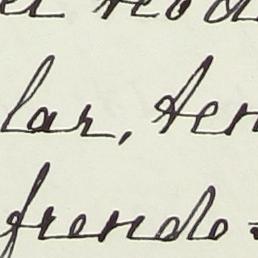 lar, ten
frendo=